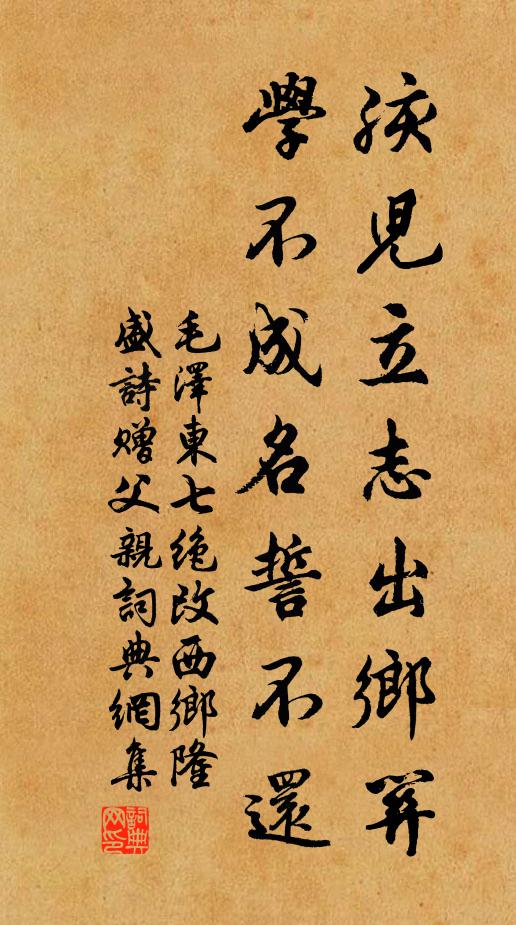 孩兒立志出鄉關
學不成名誓不還
毛澤東七絶改西鄉隆
盛詩贈父親詞典網集
詞典
网印